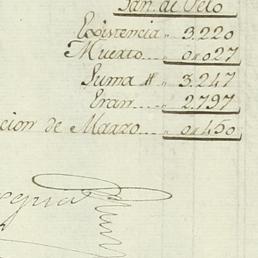 Gan. de Pelo
Existencia " 3.220
Muerto " 0 " 027
Suma # 3.247
Eran 2.797
cion de Marzo 0 " 450